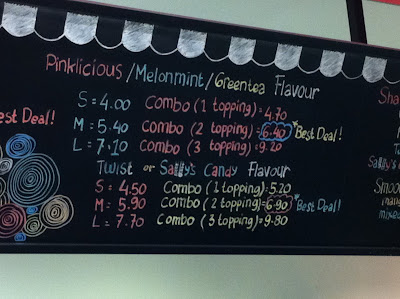 Pinklicious/Melonmint/Greentea Flavour
S = 4.00 Combo (1 topping) = 4.70
M = 5.40 Combo (2 topping) = 6.40 Best Deal!
L = 7.10 Combo (3 topping) = 9.20
Twist or Sally's Candy Flavour
S = 4.50 Combo (1 topping) = 5.20
M = 5.90 Combo (2 topping) = 6.90 Best Deal!
L = 7.70 Combo (3 topping) = 9.80
est Deal!
Sha
Sally's
Smoo
mang
mixed